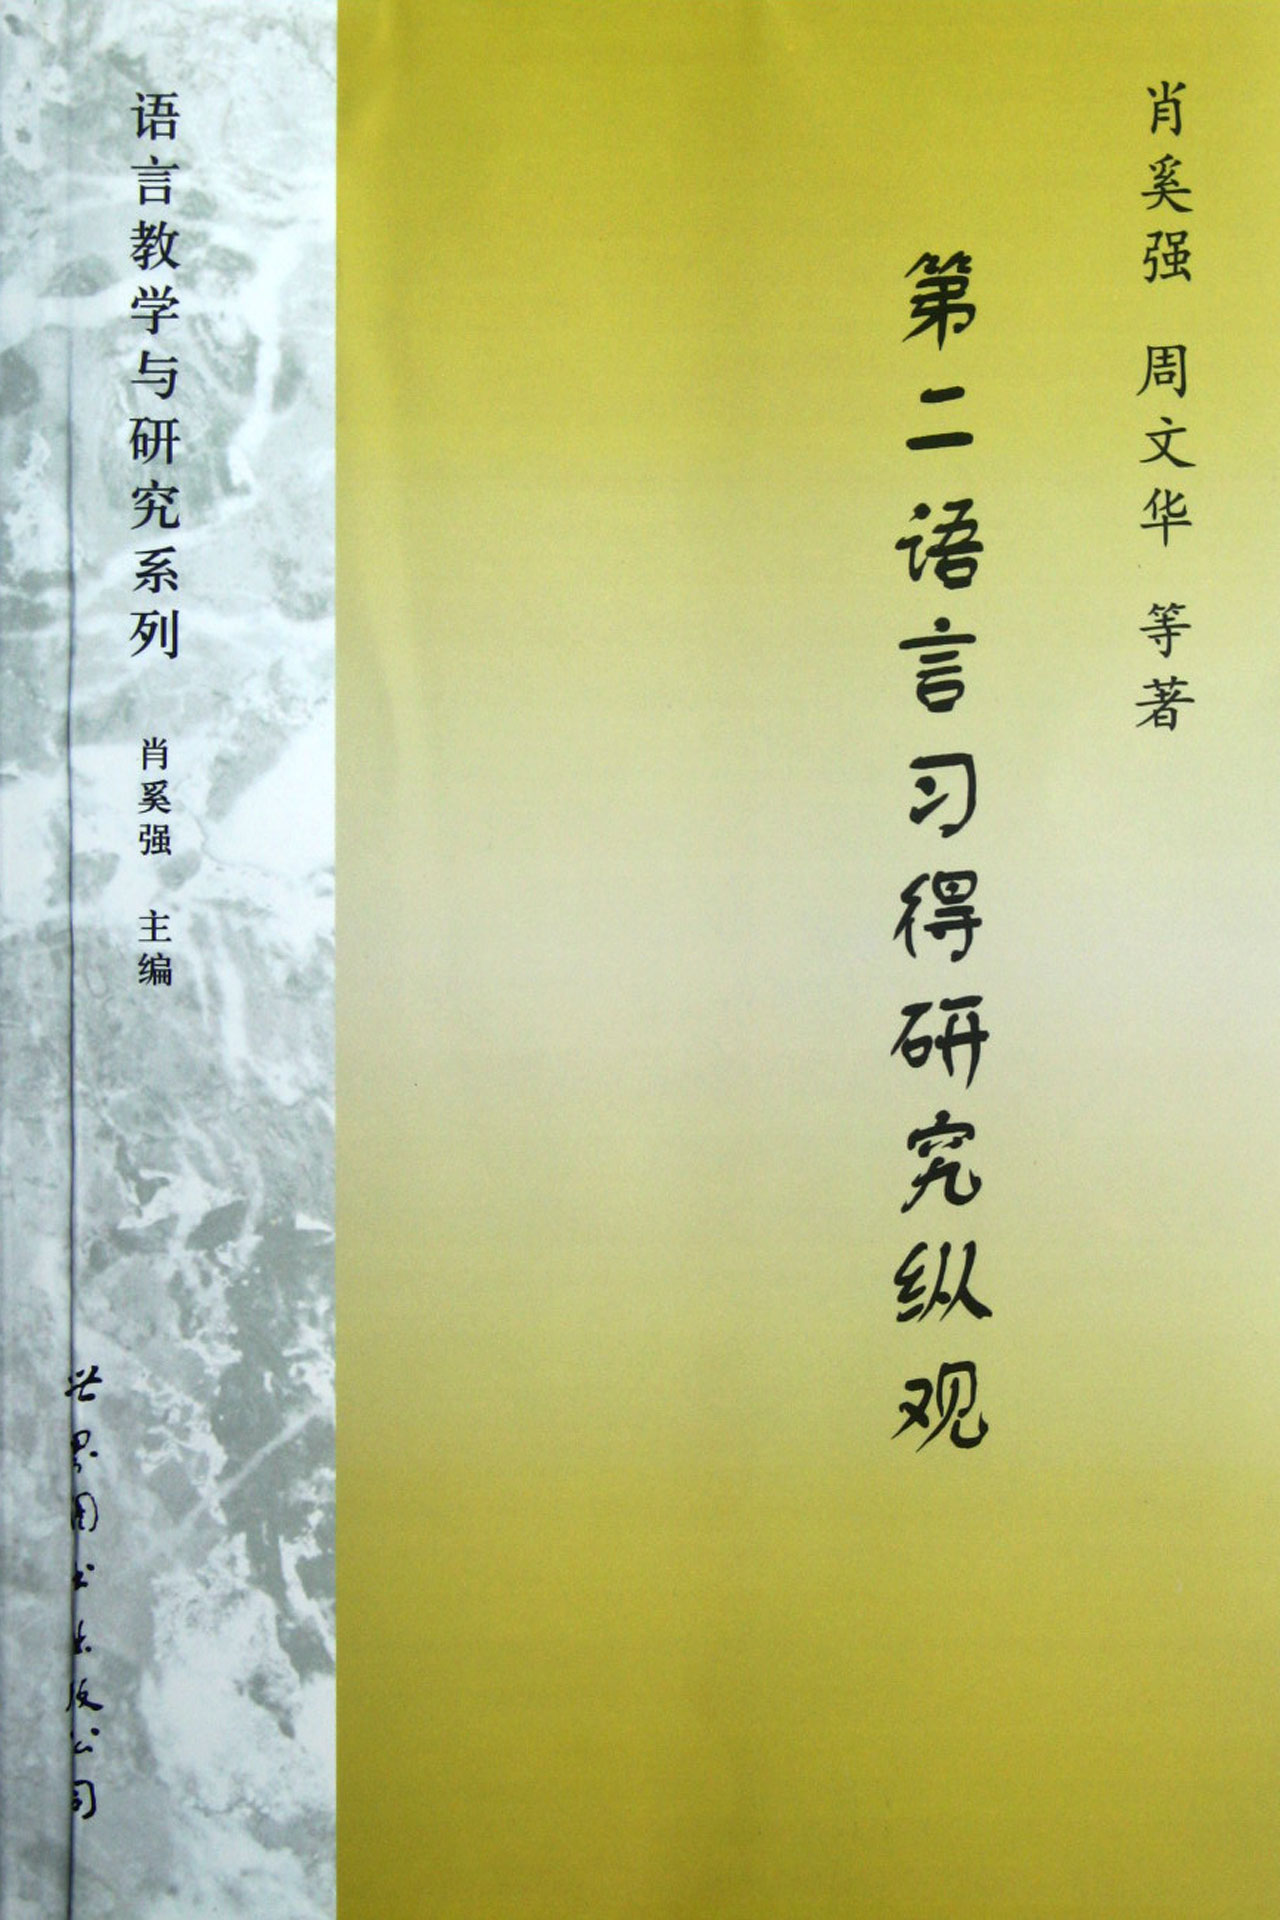 肖奚强 周文华 等著
第二语言习得研究纵观
语言教学与研究系列
肖奚强 主编
世界图书出版公司